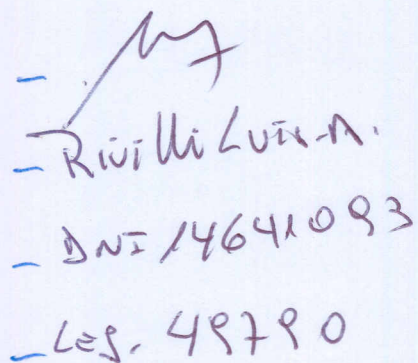 - Rivilli Luis A.
- DNI 14641093
- Leg. 49790